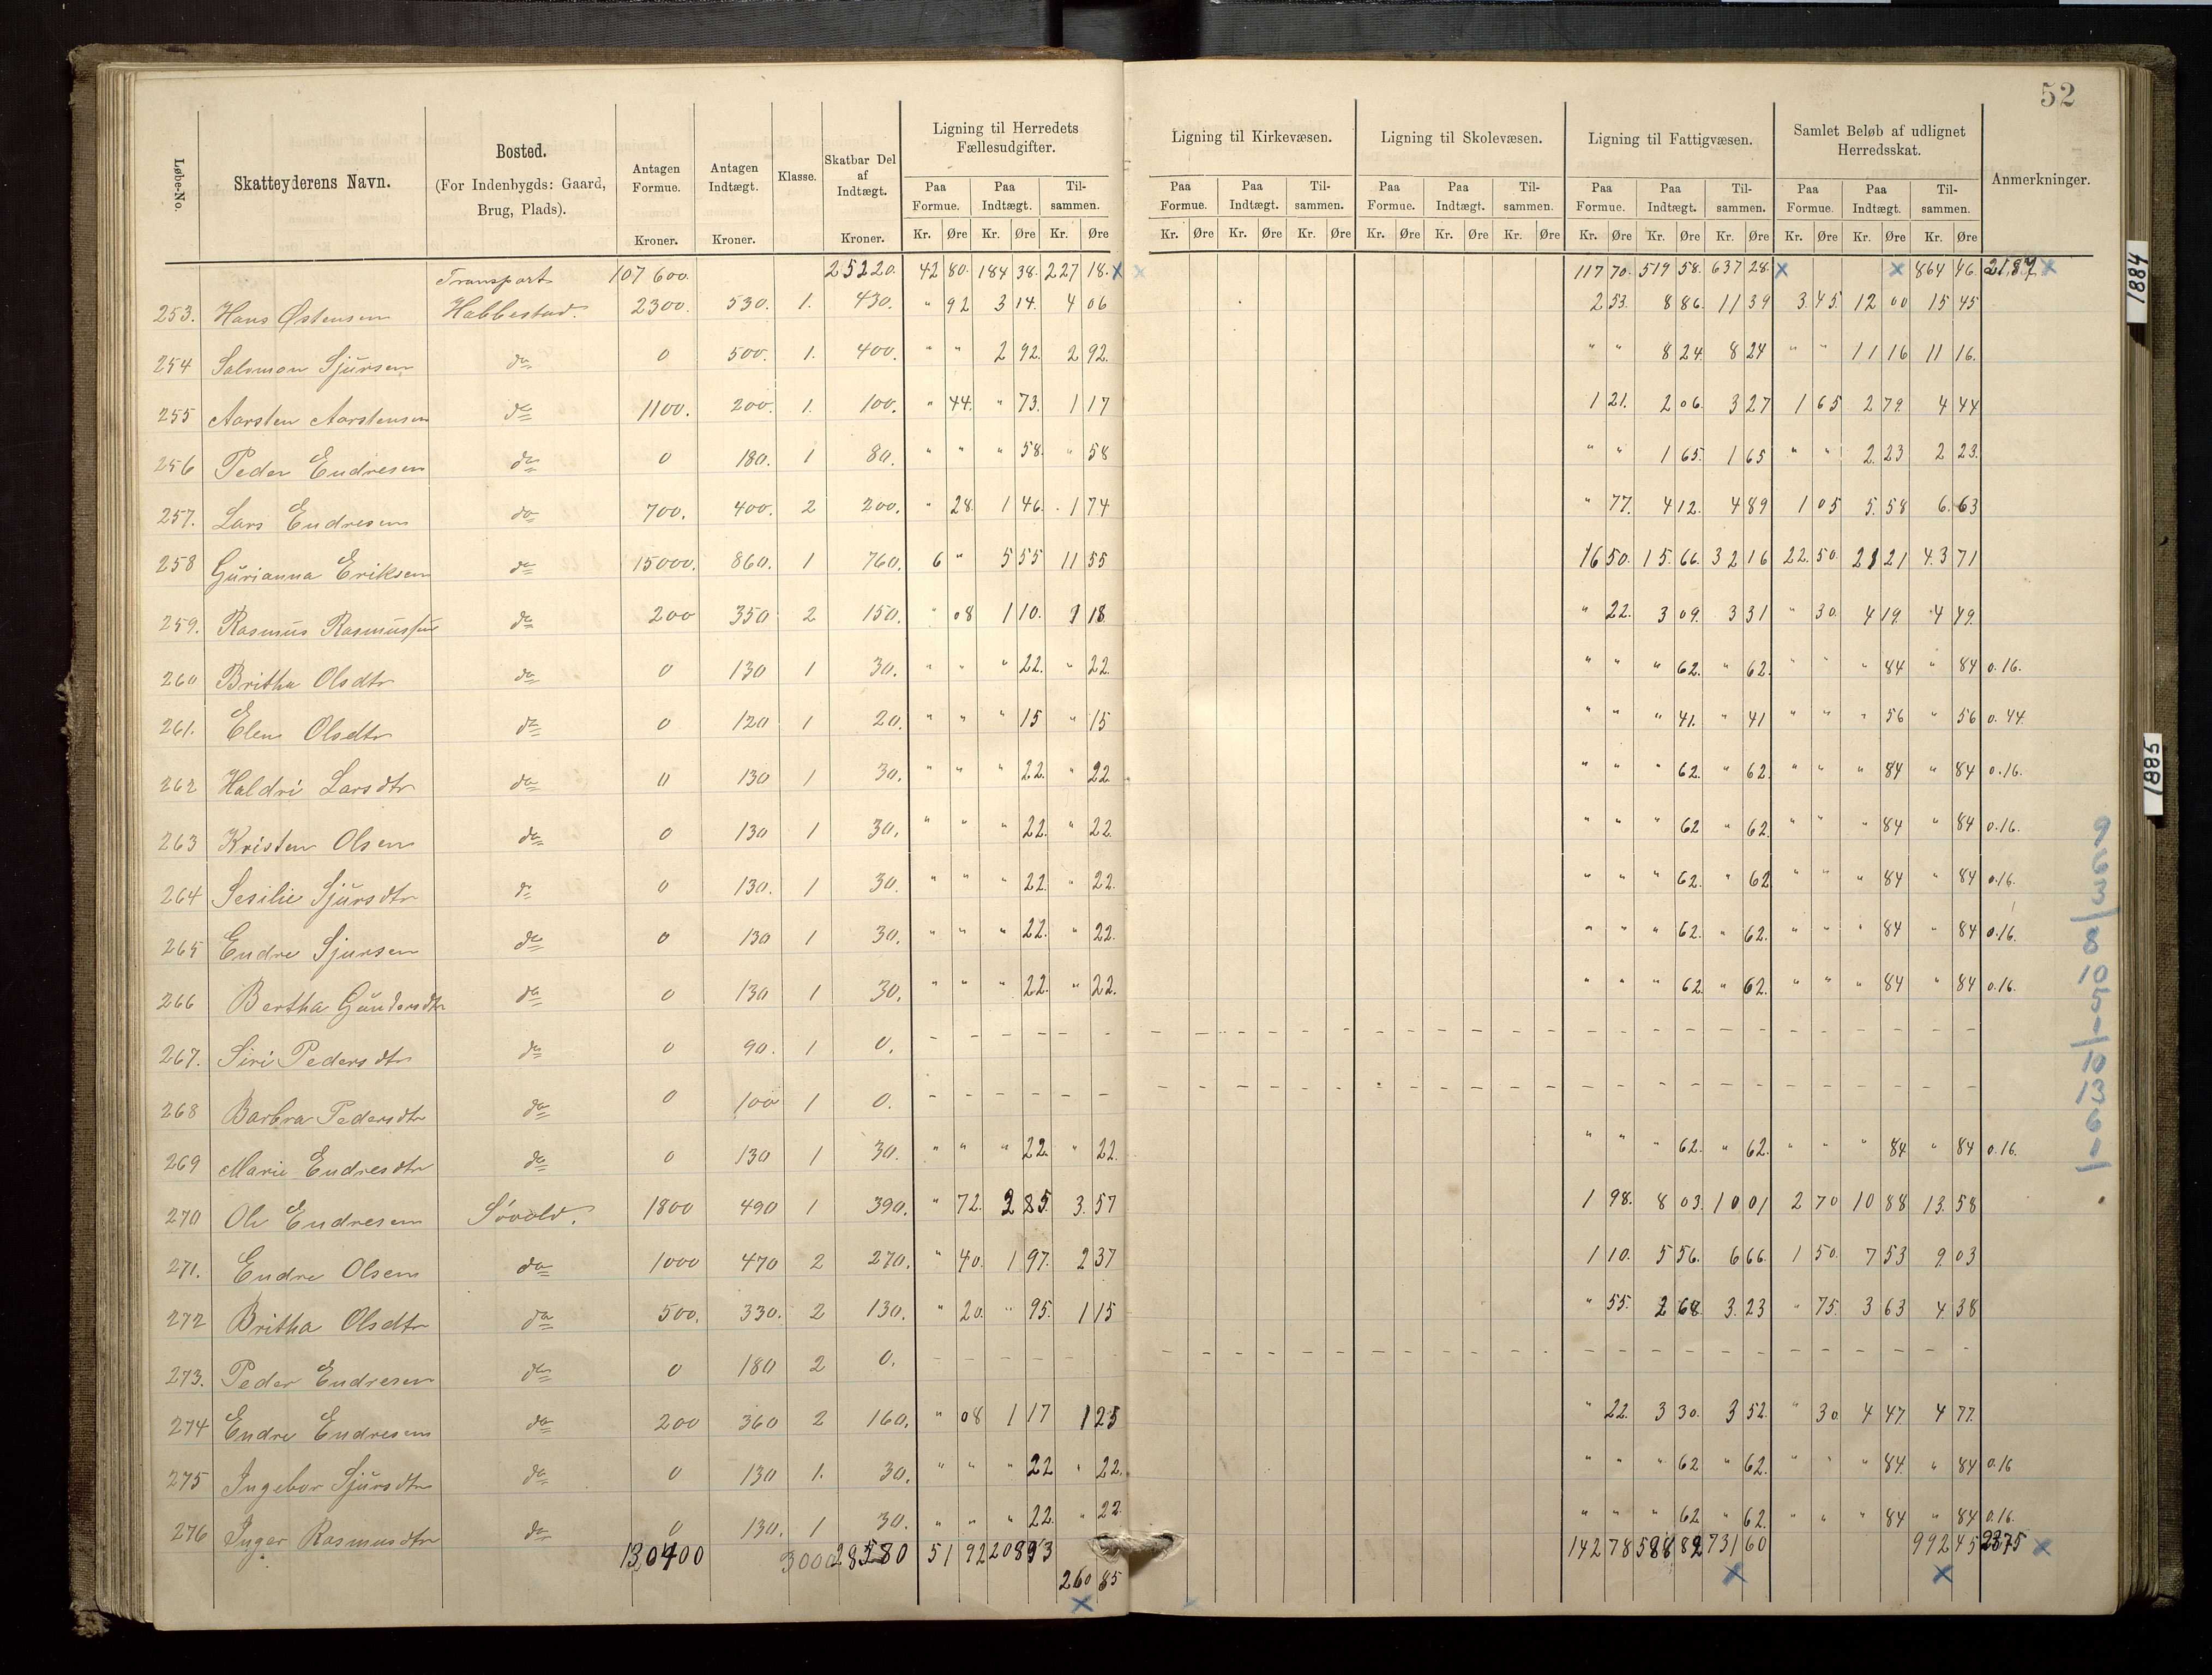 52
Løbe-No. | Skatteyderens Navn. | Bosted. (For Indenbygds: Gaard, Brug, Plads). | Antagen Formue. Kroner. | Antagen Indtægt. Kroner. | Klasse. | Skatbar Del af Indtægt. Kroner. | Ligning til Herredets Fællesudgifter. | Ligning til Kirkevæsen. | Ligning til Skolevæsen. | Ligning til Fattigvæsen. | Samlet Beløb af udlignet Herredsskat. | Anmerkninger.
Paa Formue. | Paa Indtægt. | Til-sammen. | Paa Formue. | Paa Indtægt. | Til-sammen. | Paa Formue. | Paa Indtægt. | Til-sammen. | Paa Formue. | Paa Indtægt. | Til-sammen. | Paa Formue. | Paa Indtægt. | Til-sammen.
Kr. Øre Kr. Øre Kr. Øre | Kr. Øre Kr. Øre Kr. Øre | Kr. Øre Kr. Øre Kr. Øre | Kr. Øre Kr. Øre Kr. Øre | Kr. Øre Kr. Øre Kr. Øre
Transport 107600. 25220. 42 80. 184 38. 227 18. x x 117 70. 519 58. 637 28. x x 864 46. 21.87 x
253. Hans Østensen Habbestad. 2300. 530. 1. 430. " 92 3 14. 4 06 2 53. 8 86. 11 39 3 45. 12 00 15 45
254 Salomon Sjursen do 0 500. 1. 400. " " 2 92. 2 92. " " 8 24. 8 24 " " 11 16 11 16.
255 Aarsten Aarstensen do 1100. 200. 1. 100. " 44. " 73. 1 17 1 21. 2 06. 3 27 1 65 2 79. 4 44
256 Peder Endresen do 0 180. 1 80. " " " 58. " 58 " " 1 65. 1 65 " " 2 23 2 23.
257. Lars Endresen do 700. 400. 2 200. " 28. 1 46. 1 74 " 77. 4 12. 4 89 1 05 5 58 6. 63
258 Gurianna Eriksen do 15000. 860. 1 760. 6 " 5 55 11 55 16 50. 15 66. 32 16 22. 50. 21 21 43 71
259. Rasmus Rasmussen do 200 350 2 150. " 08 1 10. 1 18. " 22. 3 09. 3 31 " 30. 4 19. 4 49.
260 Britha Olsdtr do 0 130 1 30. " " " 22. " 22. " " " 62. " 62. " " " 84 " 84 0.16.
261. Elen Olsdtr do 0 120 1 20. " " " 15 " 15 " " " 41. " 41 " " " 56 " 56 0.44
262 Haldri Larsdtr do 0 130 1 30. " " " 22. " 22. " " " 62. " 62. " " " 84 " 84 0.16.
263 Kristen Olsen do 0 130 1 30. " " " 22. " 22. " " " 62 " 62. " " " 84 " 84 0.16.
264 Sesilie Sjursdtr do 0 130. 1 30. " " " 22. " 22. " " " 62. " 62 " " " 84 " 84 0.16.
265 Endre Sjursen do 0 130 1 30. " " " 22. " 22. " " " 62. " 62. " " " 84 " 84 0.16.
266 Bertha Gundersdtr do 0 130 1 30. " " " 22. " 22. " " " 62. " 62. " " " 84 " 84 0.16.
267. Siri Pedersdtr do 0 90. 1 0. – – – – – – – – – – – – – – – – – – – – – – – – – – – – – –
268 Barbra Pedersdtr do 0 100 1 0. – – – – – – – – – – – – – – – – – – – – – – – – – – – – – –
269 Marie Endresdtr do 0 130 1 30. " " " 22. " 22. " " " 62. " 62. " " " 84 " 84 0.16.
270 Ole Endresen Søvold. 1800 490 1 390. " 72. 2 85. 3. 57 1 98. 8 03. 10 01 2 70 10 88 13. 58
271. Endre Olsen do 1000 470 2 270. " 40. 1 97. 2 37 1 10. 5 56. 6 66. 1 50. 7 53 9. 03
272 Britha Olsdtr do 500. 330. 2 130. " 20. " 95. 1 15 " 55. 2 68. 3. 23 " 75. 3 63 4. 38
273. Peder Endresen do 0 180 2 0. – – – – – – – – – – – – – – – – – – – – – – – – – – – – – –
274 Endre Endresen do 200 360 2 160. " 08 1 17 1 25 " 22. 3 30. 3 52. " 30 4 47. 4 77.
275 Ingebor Sjursdtr do 0 130 1. 30. " " " 22 " 22. " " " 62 " 62. " " " 84. " 84 0.16
276 Inger Rasmusdtr do 0 130. 1 30. " " " 22. " 22. " " " 62 " 62. " " " 84 " 84 0.16.
130400 3000 28580 51 92 208 93 142 78 588 82 731 60 992 45 2375 x
260 85 x x
x
1884
1885